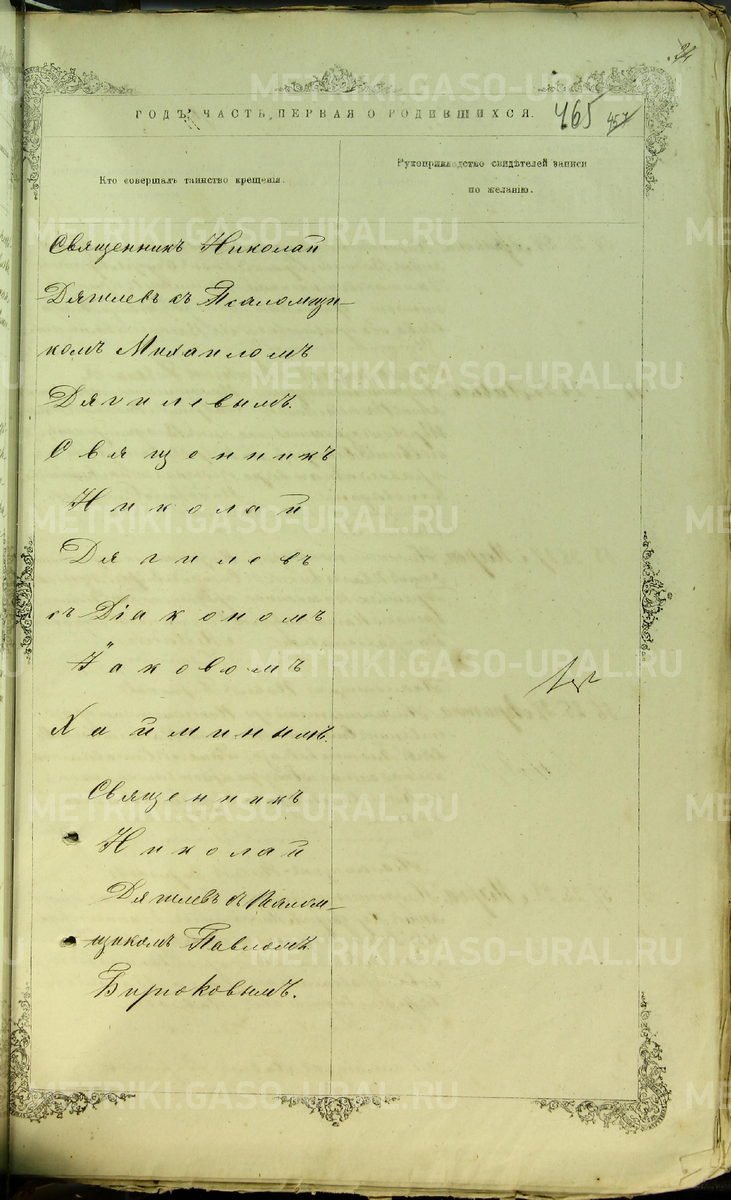 ГОДЪ, ЧАСТЬ ПЕРВАЯ О РОДИВШИХСЯ.
465
457
Кто совершалъ таинство крещенія.
Рукоприкладство свидѣтелей записи
по желанію.
Священникъ Николай
Дягилевъ съ Псаломщи-
комъ Михаиломъ
Дягилевымъ.
Священникъ
Николай
Дягилевъ
съ Діаконом
Іаковомъ
Хайминымъ.
Священникъ
Николай
Дягилевъ съ Псалом-
щикомъ Павломъ
Бирюковымъ.
METRIKI.GASO-URAL.RU